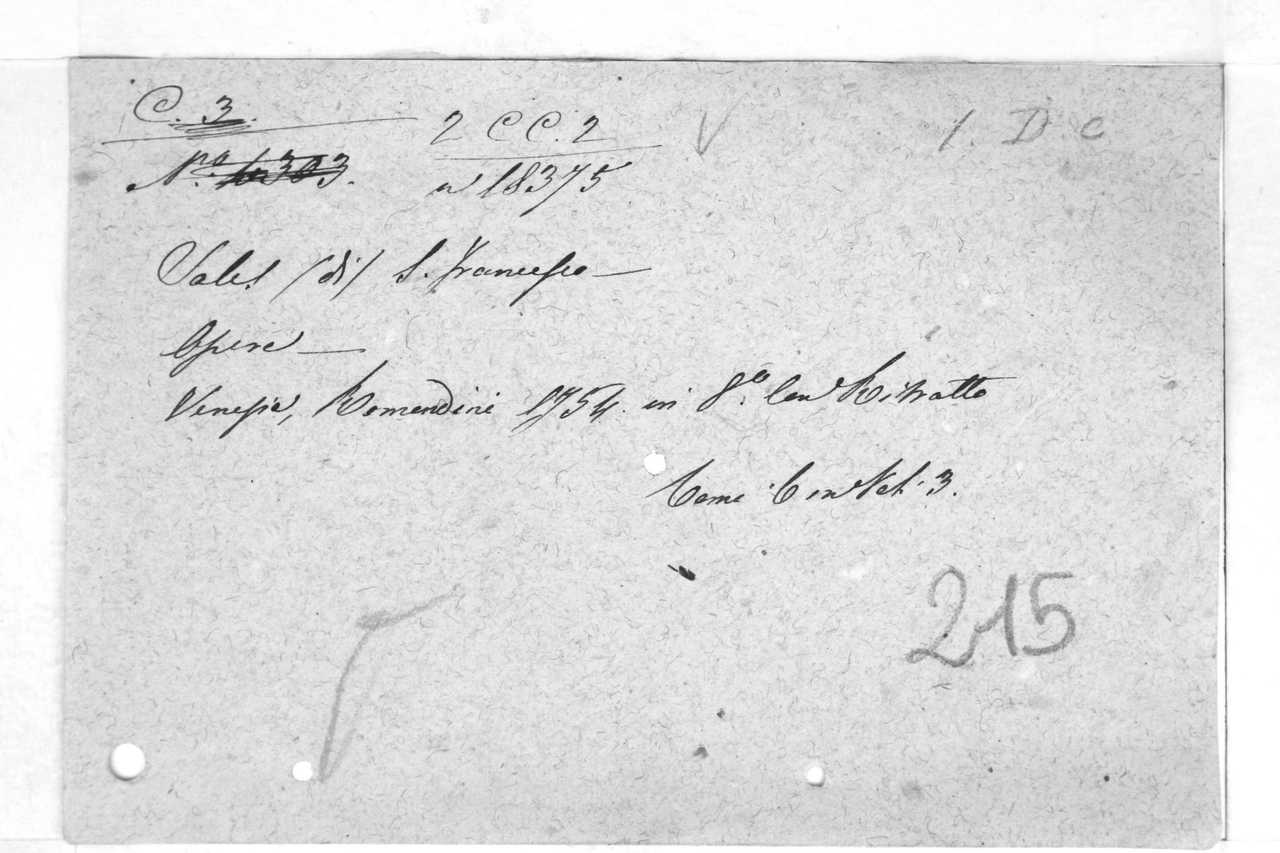 C. 3. 2 CC. 2 V 1. D c
N.º 303. n 18375
Sales (di) S. Francesco —
Opere —
Venezia, Remondini 1754. in 8.º Con Ritratto
Tomi
215